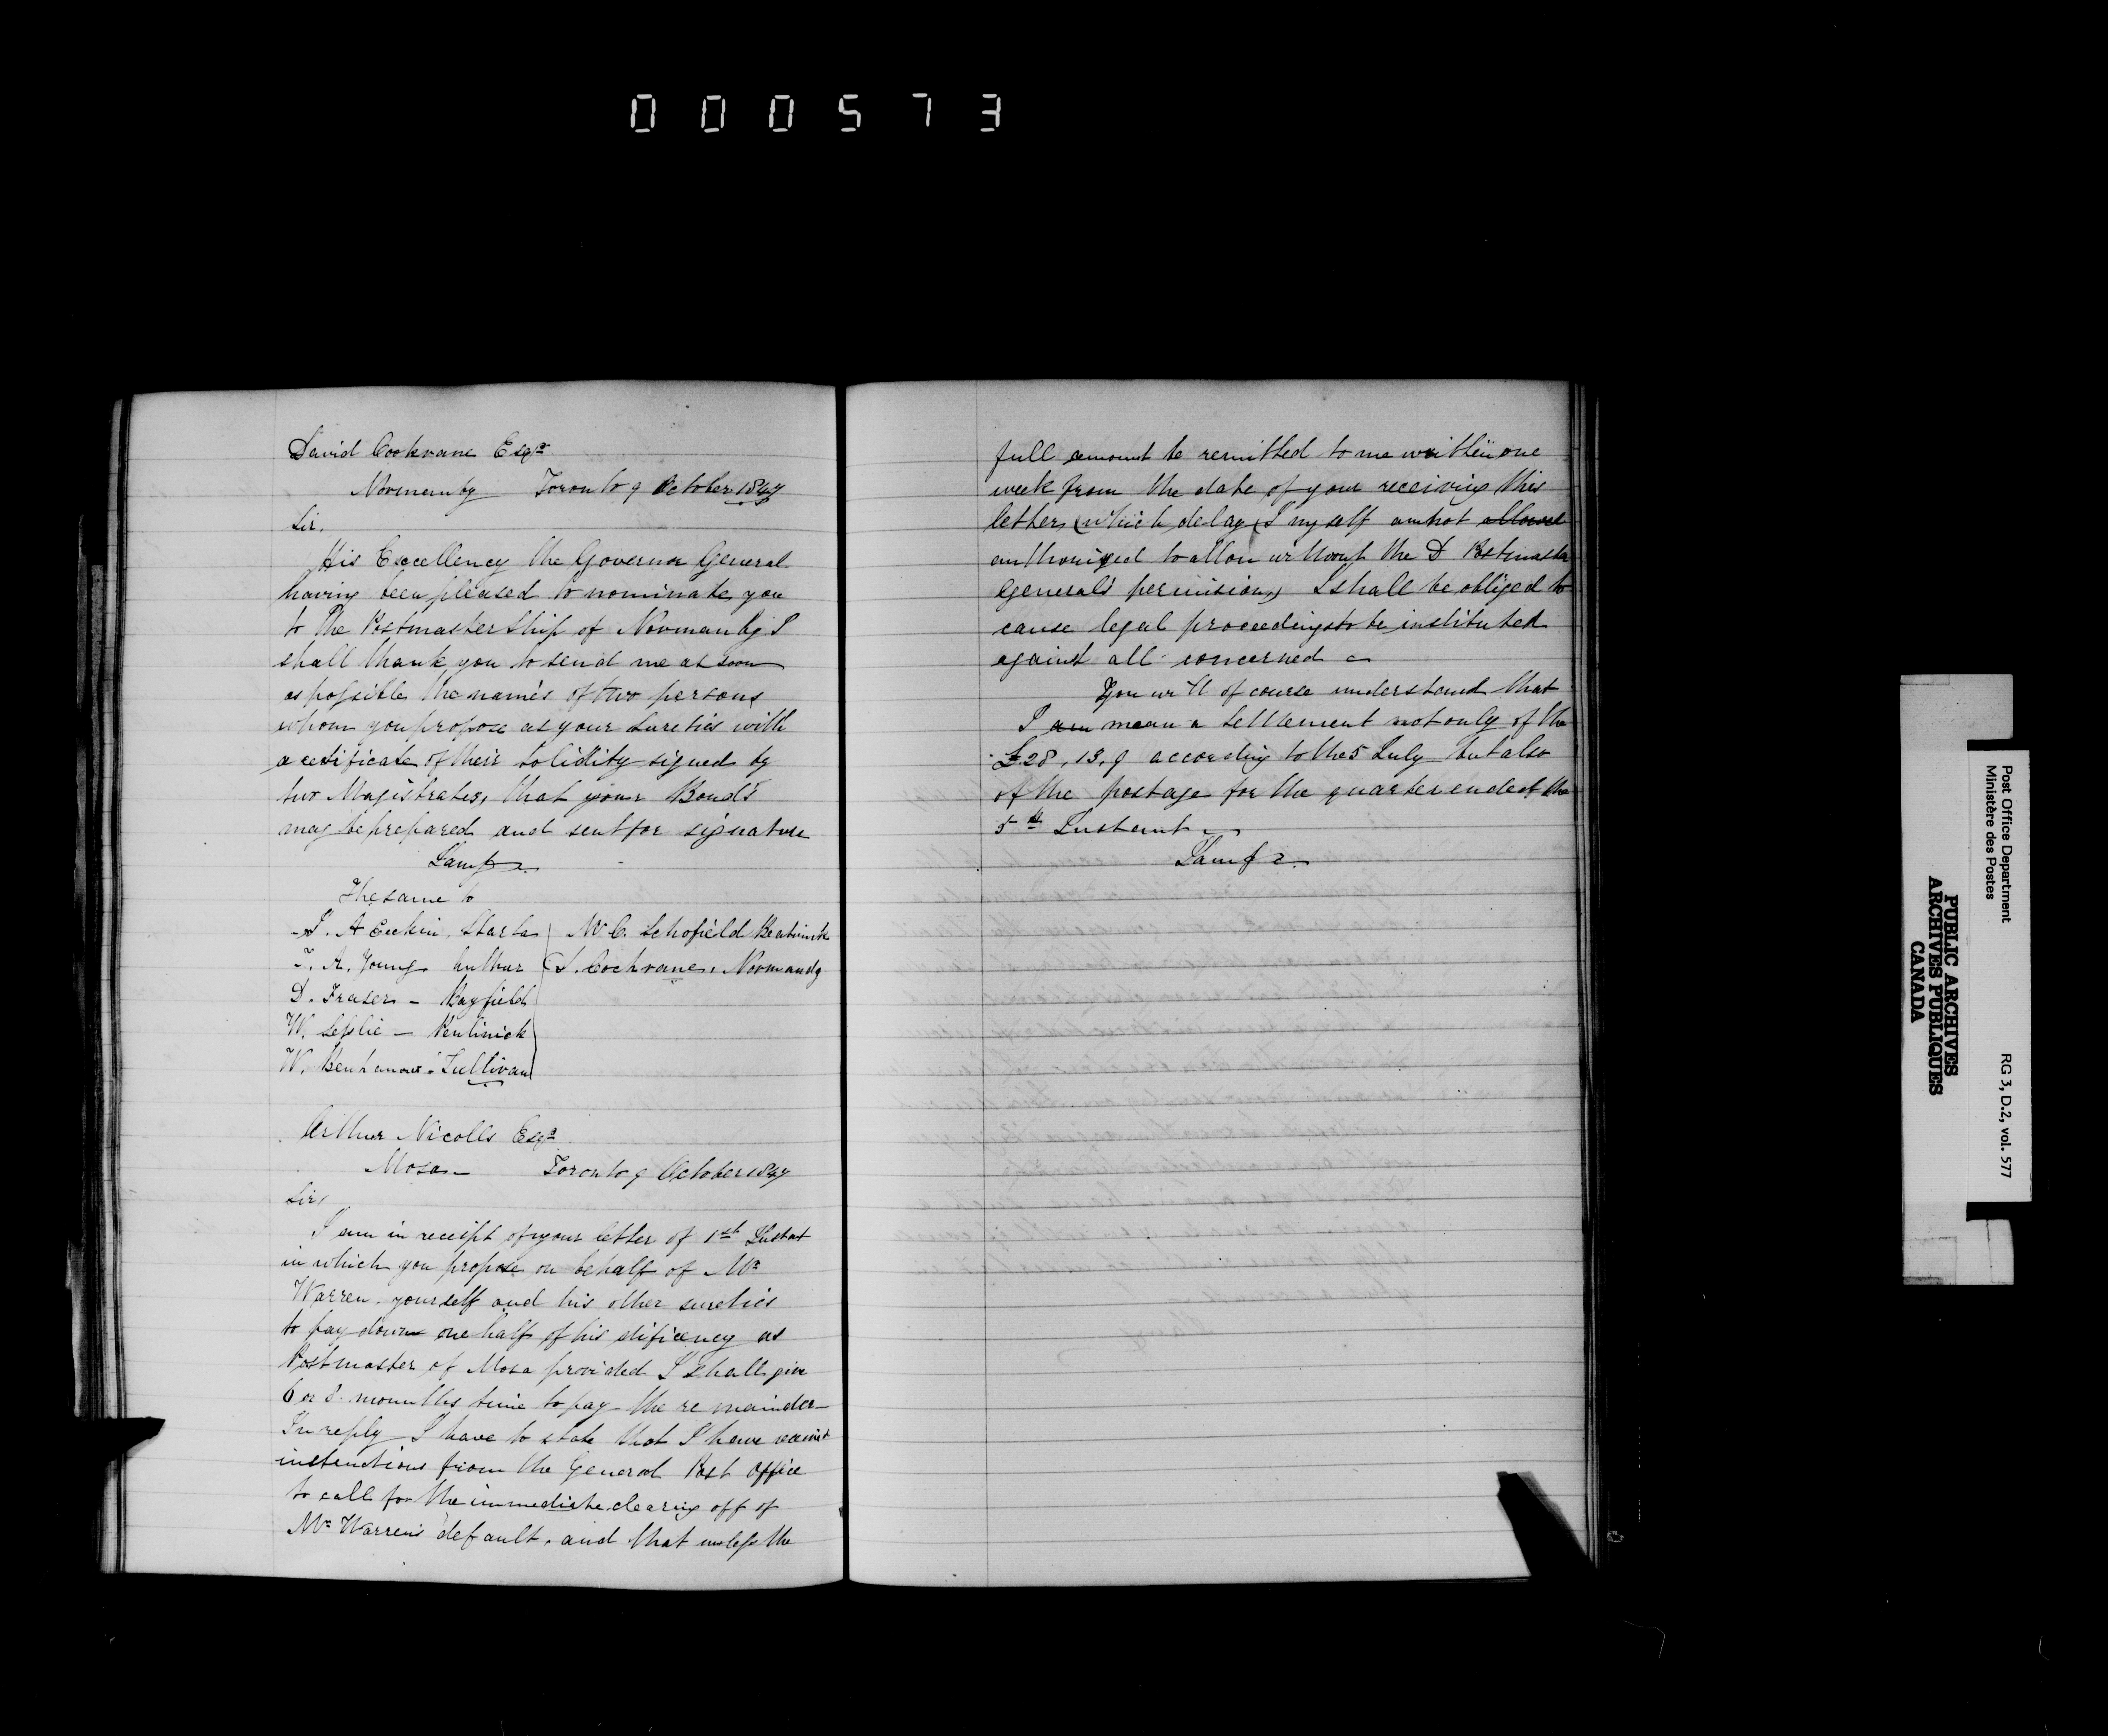 000573
David Cochrane Esqr
Normanby Toronto 9 October 1847
Sir,
His Excellency the Governor General
having been pleased to nominate you
to the Postmastership of Normanby I
shall thank you to send me as soon
as possible the names of two persons
whom you propose as your sureties with
a certificate of their solidity signed by
two Magistrates, that your Bonds
may be prepared and sent for signature
I am &c.
The same to
Mc C. Schofield
T. R. Young Arthur
S. Cochrane, Normandy
D. Fraser - Bayfield
W. Leslie -
W. Sullivan
Arthur Nicolls Esqr
Mosa - Toronto 9 October 1847
Sir,
I am in receipt of your letter of 1st Instant
in which you propose on behalf of Mr
Warren, yourself and his other sureties
to pay down one half of his dificency as
Postmaster of Mosa provided I shall give
6 or 8 mounths time to pay the remainder
In reply I have to state that I have received
instructions from the General Post Office
to call for the immediate clearing off of
Mr Warren's default, and that unless the
full amount be remitted to me within one
week from the date of your receiving this
letter (which delay (I myself am not allowed
authorized to allow without the D Postmaster
General's permision,) I shall be obliged to
cause legal proceedings to be instituted
against all concerned
You will of course understand that
I am mean a settlement not only of the
£28, 13, 9 according to the 5 July but also
of the postage for the quarter ended the
5th Instant
I am &c.
Post Office Department
Ministère des Postes
RG 3, D.2, vol. 577
PUBLIC ARCHIVES
ARCHIVES PUBLIQUES
CANADA